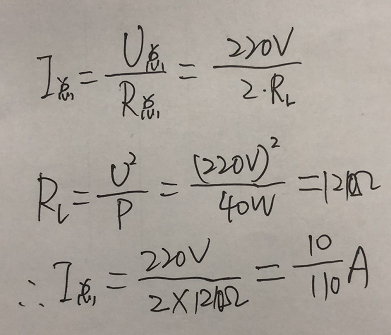 I总 = U总/R总 = 220V/2·R_L
R_L = U²/P = (220V)²/40W = 1210Ω
∴ I总 = 220V/2×1210Ω = 10/110 A